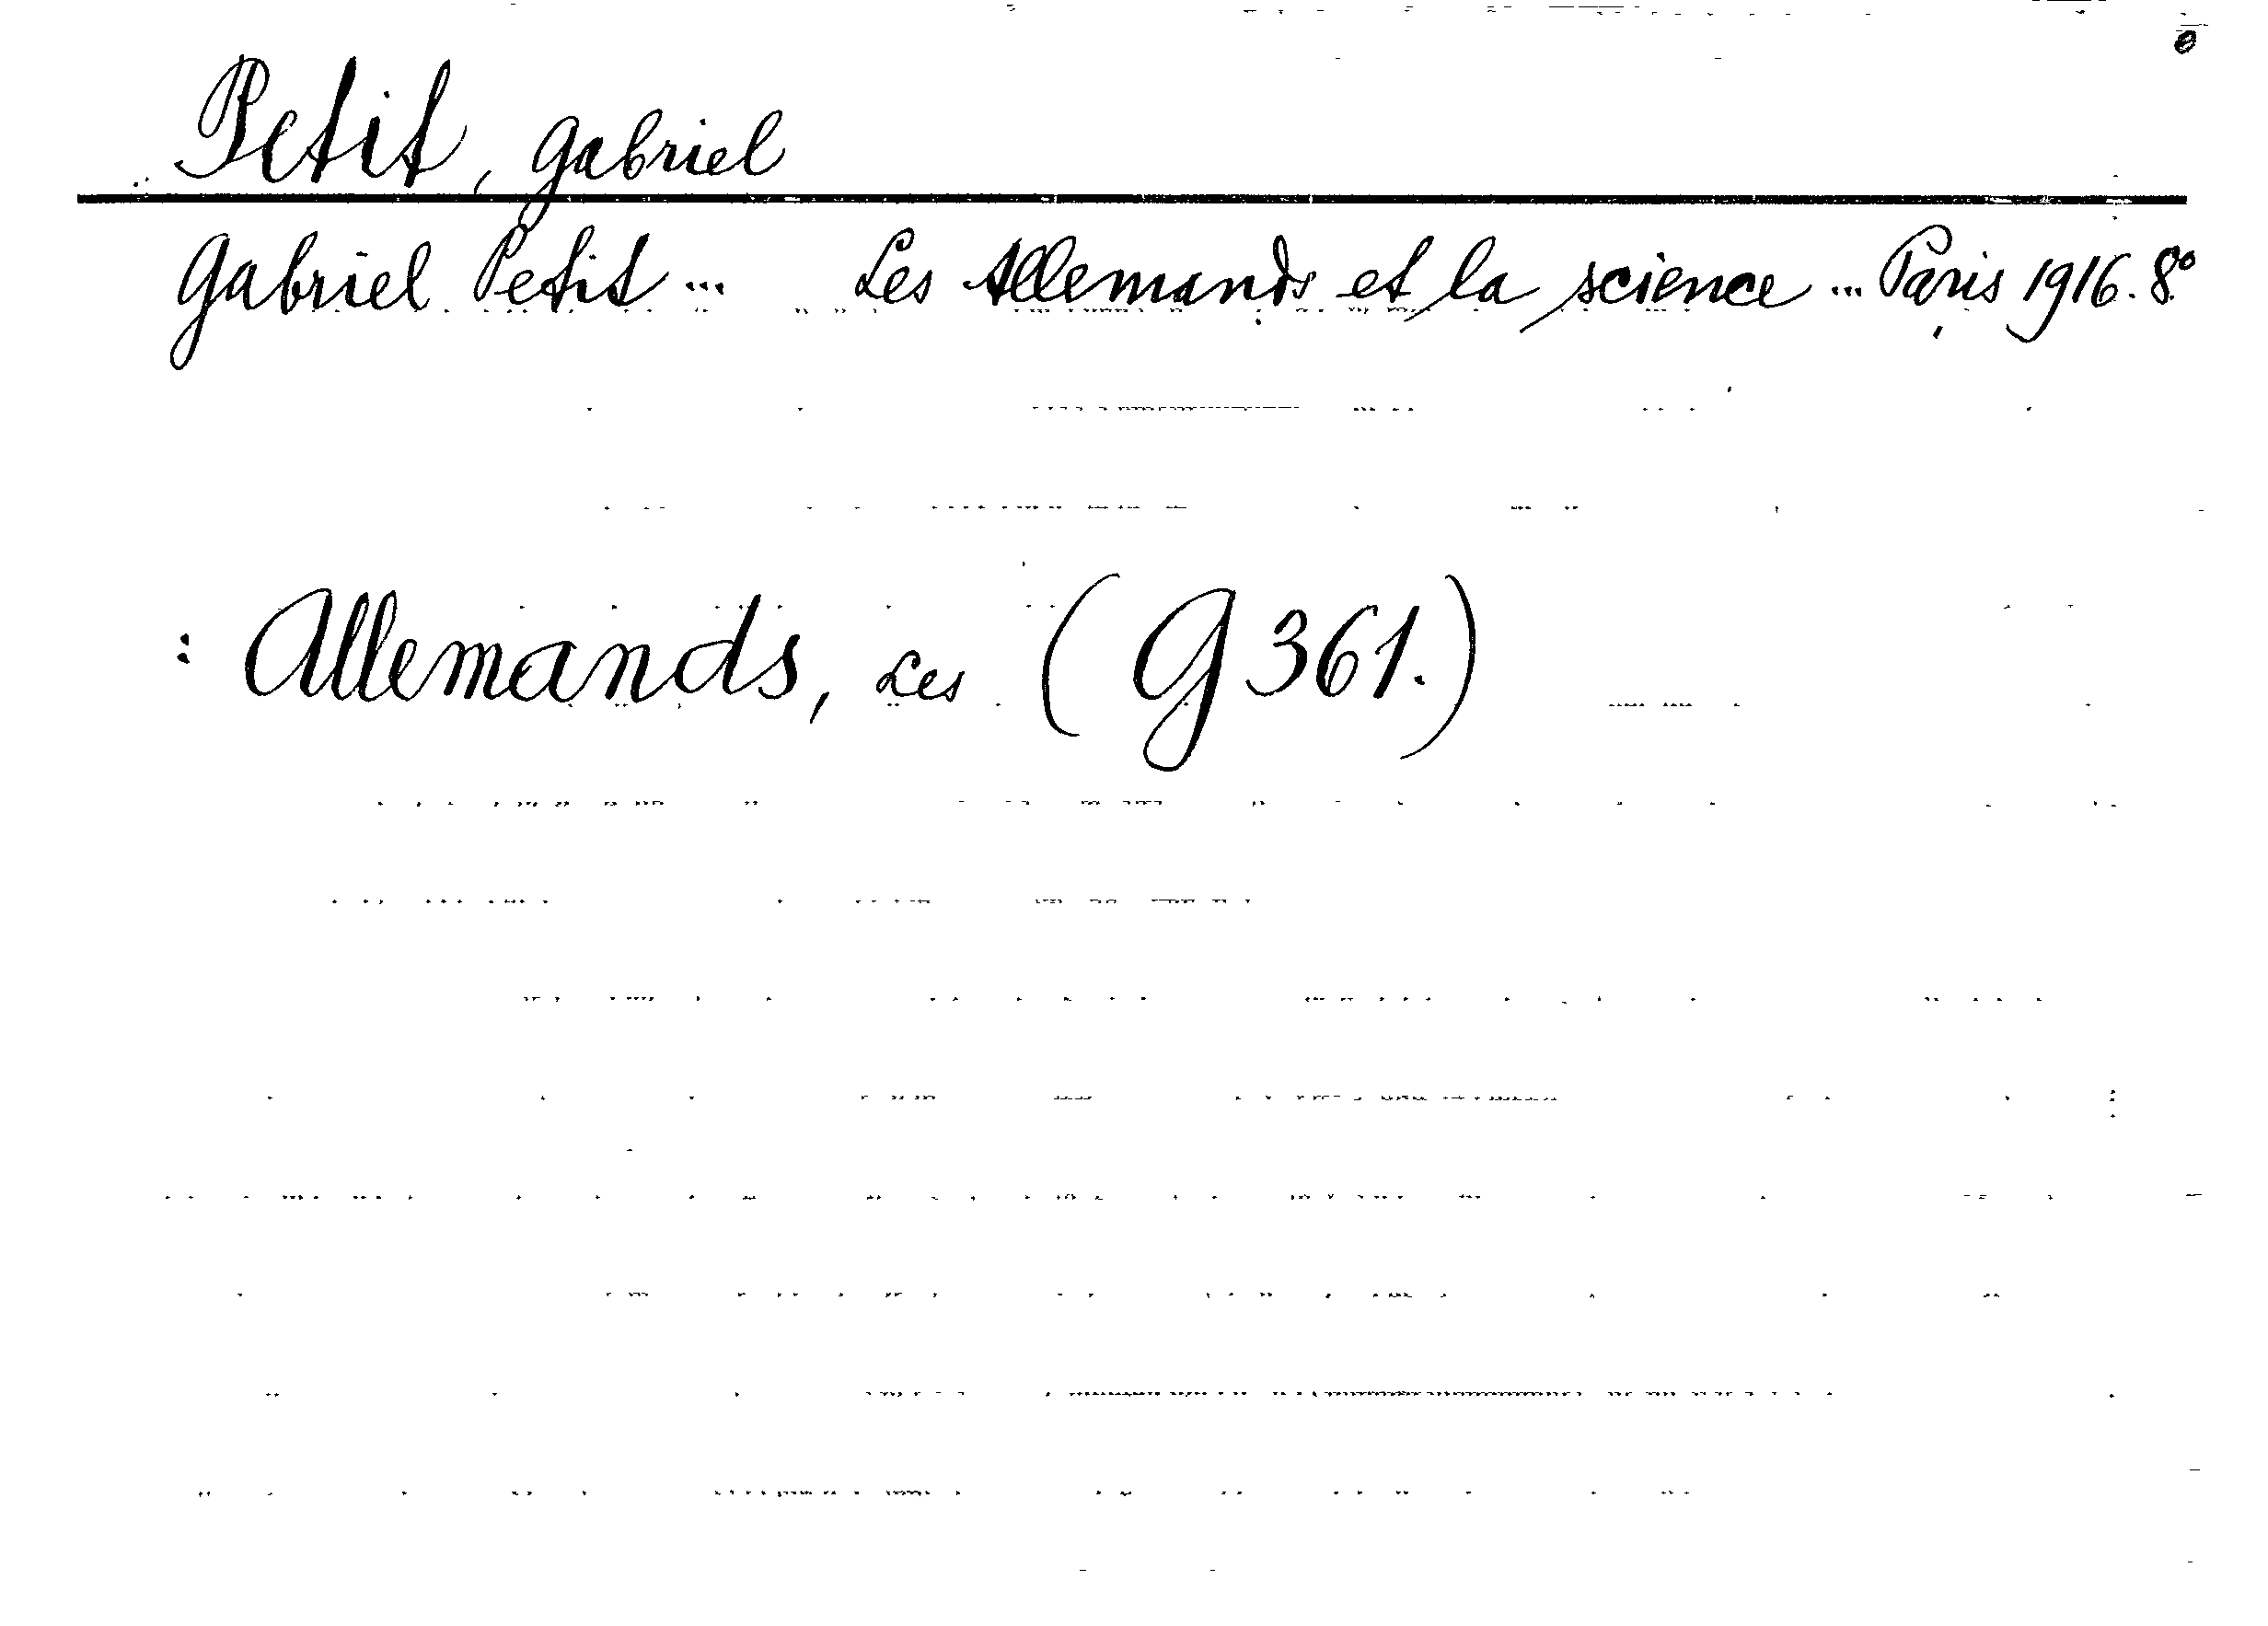 Petit, Gabriel
Gabriel Petit ... Les Allemands et la science ... Paris 1916. 8°
: Allemands, Les (G 361.)